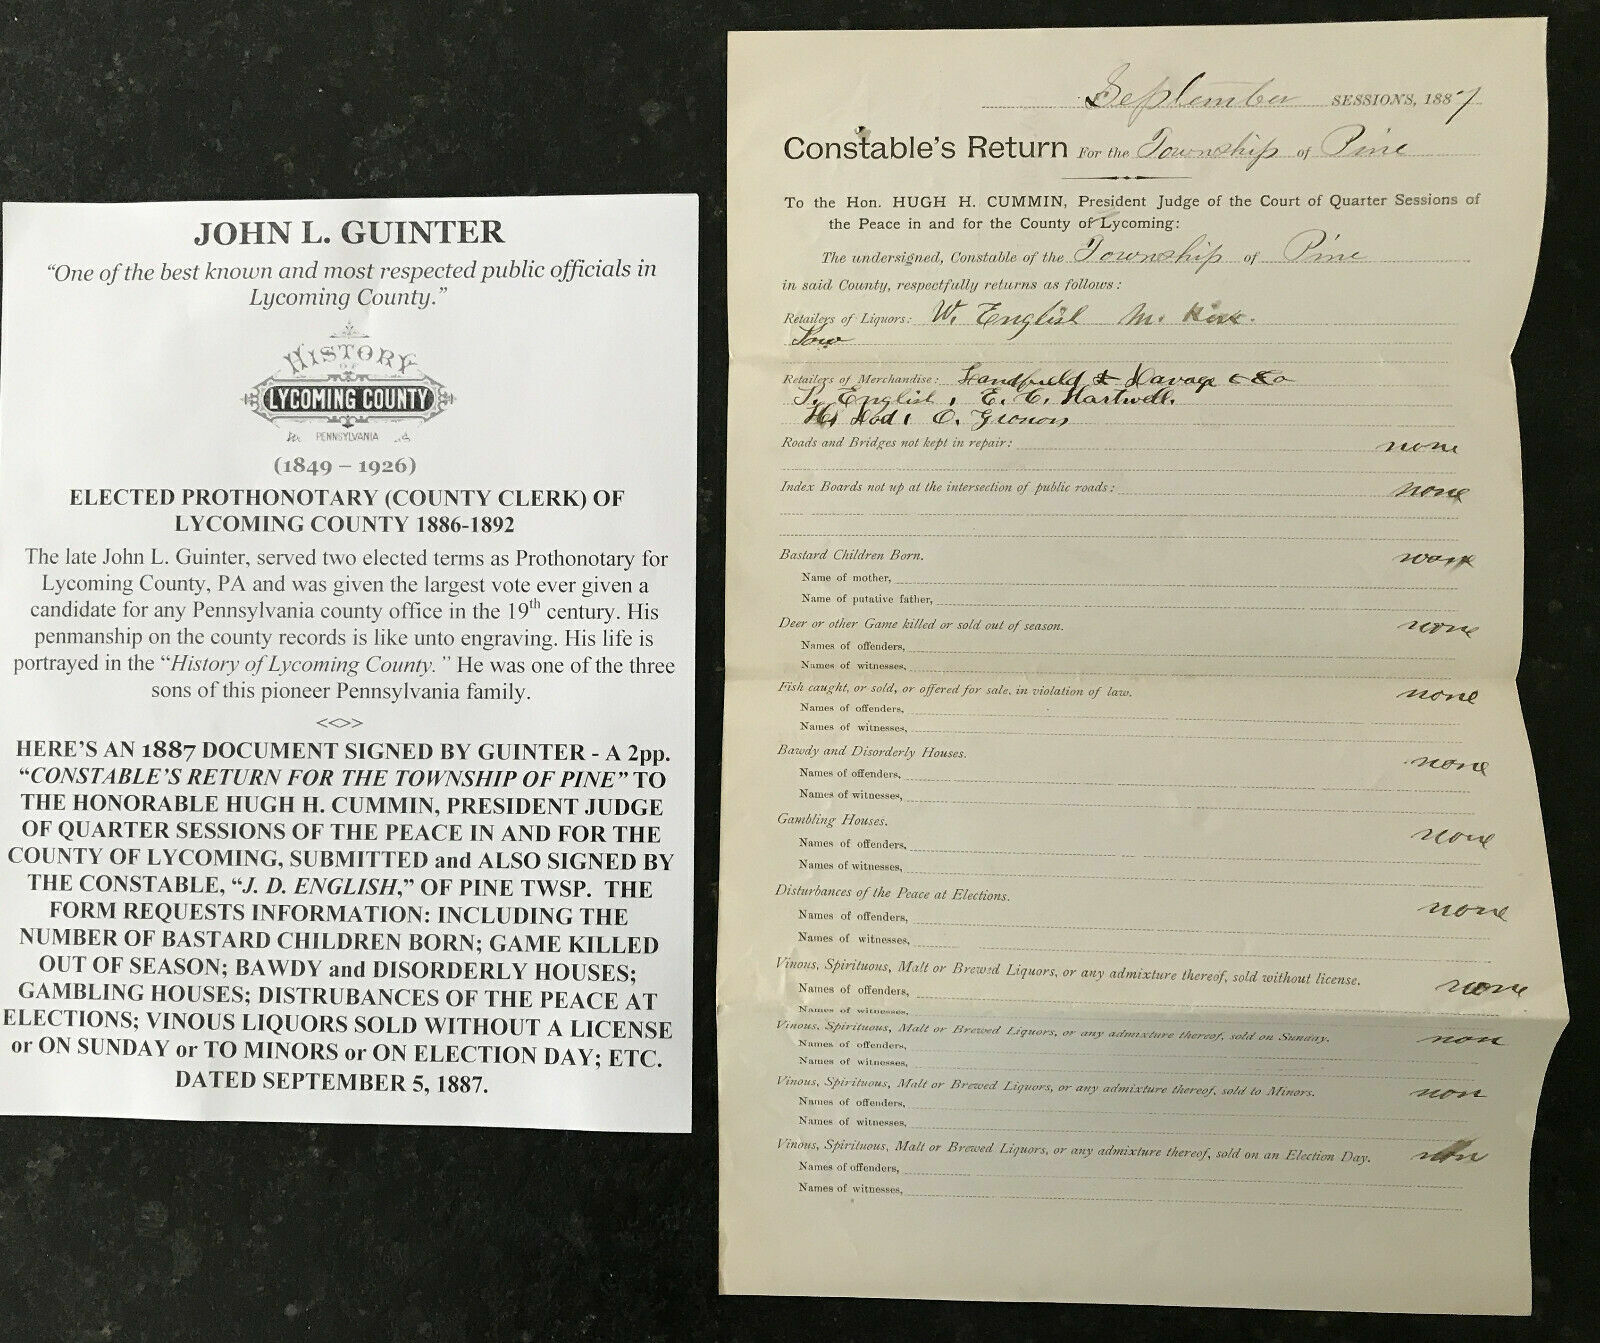 JOHN L. GUINTER
“One of the best known and most respected public officials in
Lycoming County.”
HISTORY
OF
LYCOMING COUNTY
PENNSYLVANIA
(1849 – 1926)
ELECTED PROTHONOTARY (COUNTY CLERK) OF
LYCOMING COUNTY 1886-1892
The late John L. Guinter, served two elected terms as Prothonotary for
Lycoming County, PA and was given the largest vote ever given a
candidate for any Pennsylvania county office in the 19th century. His
penmanship on the county records is like unto engraving. His life is
portrayed in the “History of Lycoming County.” He was one of the three
sons of this pioneer Pennsylvania family.
<<>>
HERE’S AN 1887 DOCUMENT SIGNED BY GUINTER - A 2pp.
“CONSTABLE’S RETURN FOR THE TOWNSHIP OF PINE” TO
THE HONORABLE HUGH H. CUMMIN, PRESIDENT JUDGE
OF QUARTER SESSIONS OF THE PEACE IN AND FOR THE
COUNTY OF LYCOMING, SUBMITTED and ALSO SIGNED BY
THE CONSTABLE, “J. D. ENGLISH,” OF PINE TWSP. THE
FORM REQUESTS INFORMATION: INCLUDING THE
NUMBER OF BASTARD CHILDREN BORN; GAME KILLED
OUT OF SEASON; BAWDY and DISORDERLY HOUSES;
GAMBLING HOUSES; DISTRUBANCES OF THE PEACE AT
ELECTIONS; VINOUS LIQUORS SOLD WITHOUT A LICENSE
or ON SUNDAY or TO MINORS or ON ELECTION DAY; ETC.
DATED SEPTEMBER 5, 1887.
September SESSIONS, 1887
Constable’s Return For the Township of Pine
To the Hon. HUGH H. CUMMIN, President Judge of the Court of Quarter Sessions of
the Peace in and for the County of Lycoming:
The undersigned, Constable of the Township of Pine
in said County, respectfully returns as follows:
Retailers of Liquors: W. English M.
Retailers of Merchandise: & Co
English, E. C. Hartwell.
Roads and Bridges not kept in repair: none
Index Boards not up at the intersection of public roads: none
Bastard Children Born. none
Name of mother,
Name of putative father,
Deer or other Game killed or sold out of season. none
Names of offenders,
Names of witnesses,
Fish caught, or sold, or offered for sale, in violation of law. none
Names of offenders,
Names of witnesses,
Bawdy and Disorderly Houses. none
Names of offenders,
Names of witnesses,
Gambling Houses. none
Names of offenders,
Names of witnesses,
Disturbances of the Peace at Elections. none
Names of offenders,
Names of witnesses,
Vinous, Spirituous, Malt or Brewed Liquors, or any admixture thereof, sold without license. none
Names of offenders,
Names of witnesses,
Vinous, Spirituous, Malt or Brewed Liquors, or any admixture thereof, sold on Sunday. non
Names of offenders,
Names of witnesses,
Vinous, Spirituous, Malt or Brewed Liquors, or any admixture thereof, sold to Minors. non
Names of offenders,
Names of witnesses,
Vinous, Spirituous, Malt or Brewed Liquors, or any admixture thereof, sold on an Election Day. non
Names of offenders,
Names of witnesses,